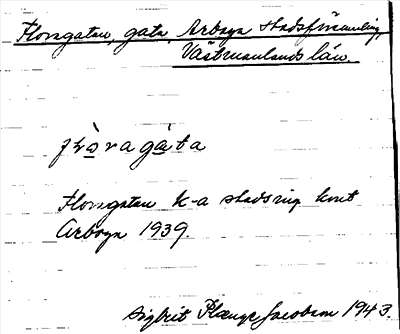 Floragatan, gata, Arboga stadsförsamling,
Västmanlands län.
flò̱ragá̱ta
Floragatan k-a stadsing kont
Arboga 1939.
Sigbrit Plænge Jacobson 1943.